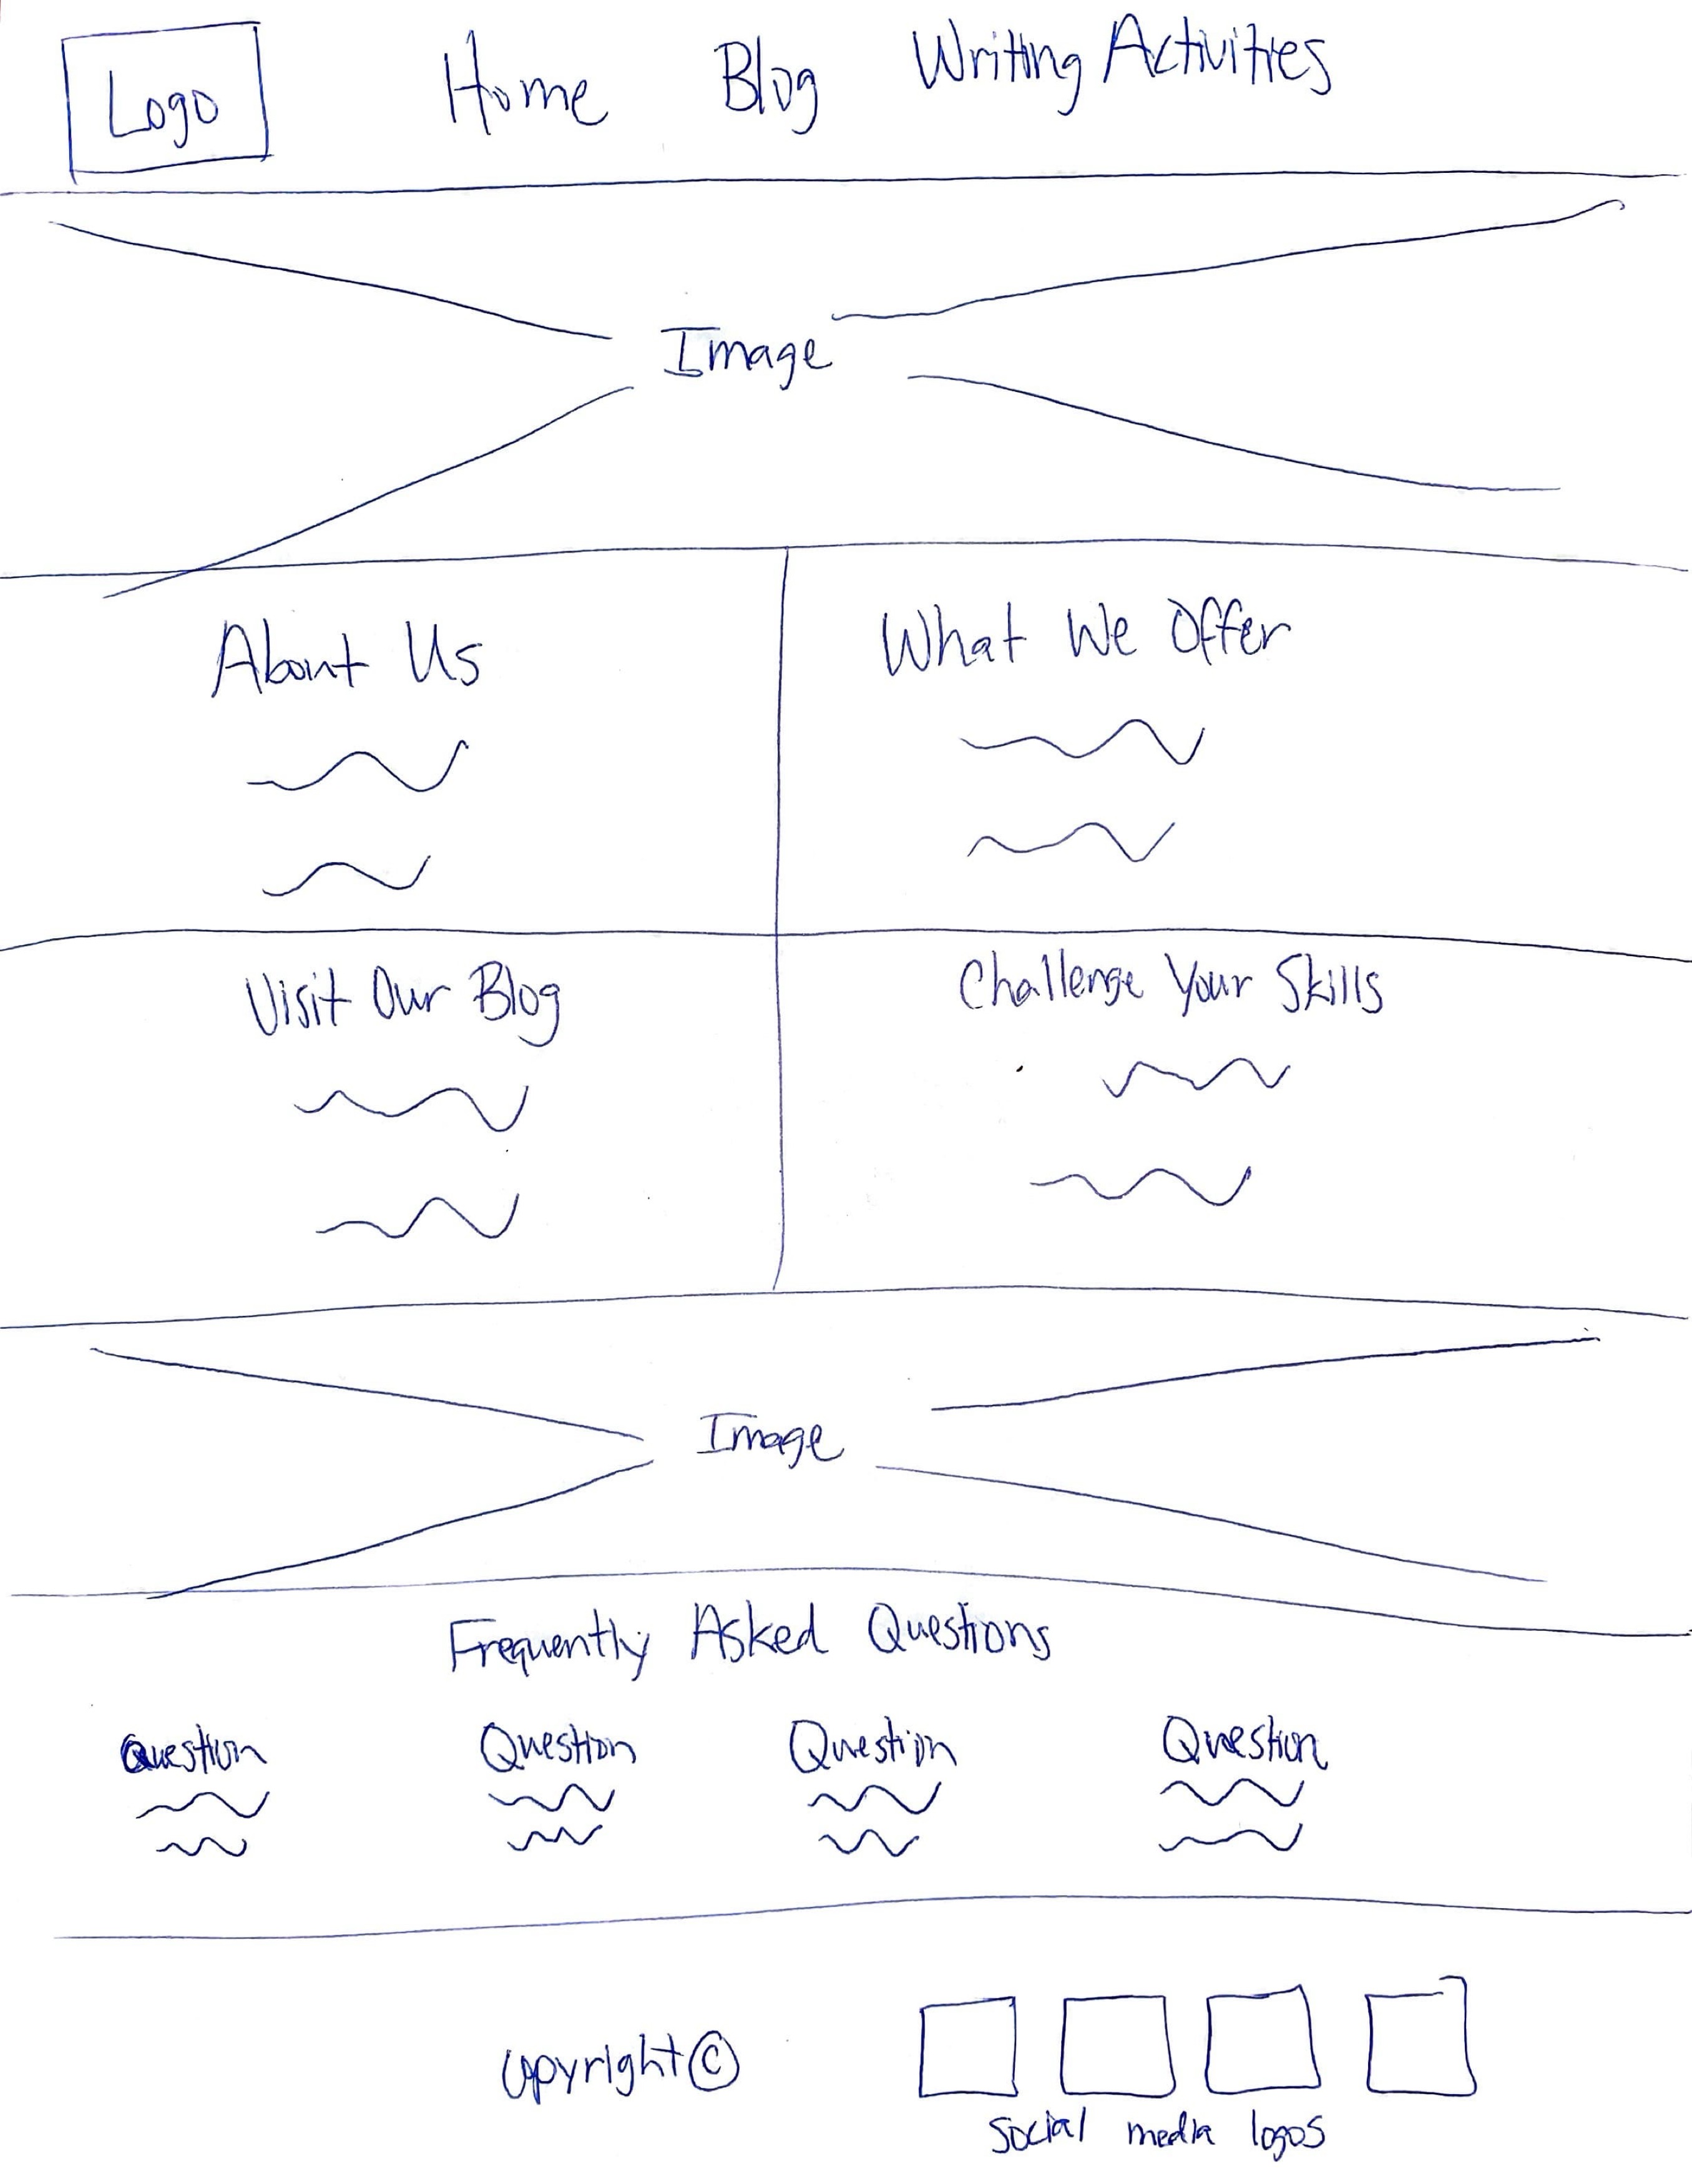 Logo Home Blog Writing Activities
Image
About Us
What We Offer
Visit Our Blog
Challenge Your Skills
Image
Frequently Asked Questions
Question Question Question Question
Copyright ©
Social media logos